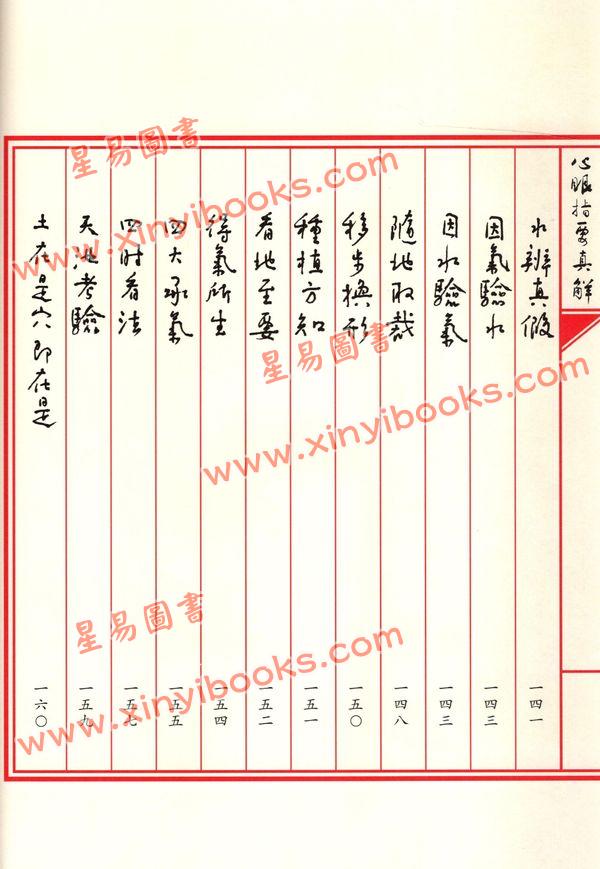 心眼指要真解
水辨真假 一四一
因氣驗水 一四三
因水驗氣 一四三
隨地取裁 一四八
移步換形 一五〇
種植方知 一五一
看地至要 一五二
得氣所生 一五四
四大承氣 一五五
四时看法 一五七
天池考驗 一五九
土在是穴即在是 一六〇
星易圖書
www.xinyibooks.com
星易圖書
www.xinyibooks.com
星易圖書
www.xinyibooks.com